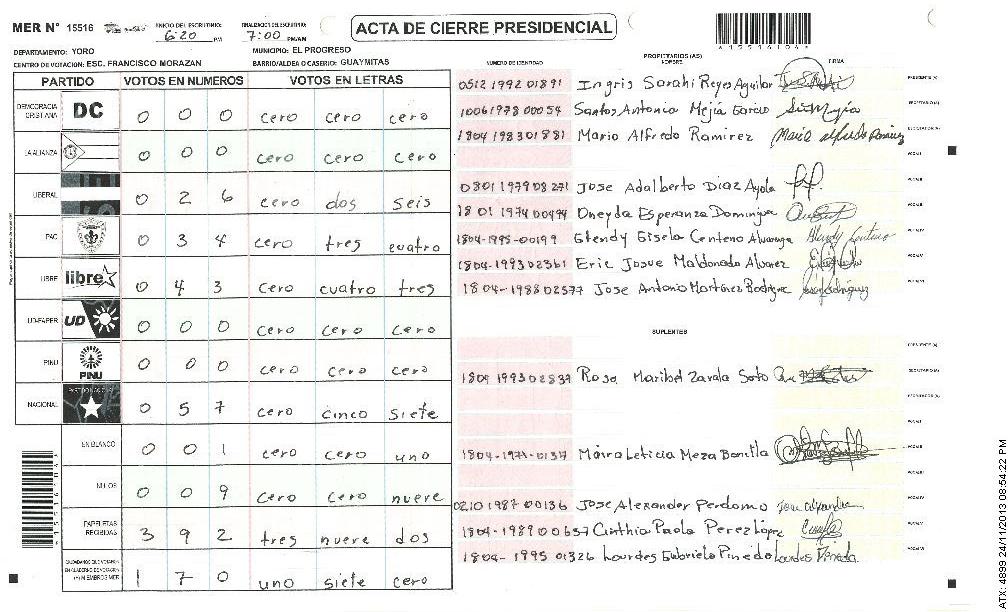 MER N° 15516
INICIO DEL ESCRUTINIO: 6:20 PM
FINALIZACION DEL ESCRUTINIO: 7:00 PM/AM
ACTA DE CIERRE PRESIDENCIAL
DEPARTAMENTO: YORO
MUNICIPIO: EL PROGRESO
CENTRO DE VOTACION: ESC. FRANCISCO MORAZAN
BARRIO/ALDEA O CASERIO: GUAYMITAS
PARTIDO VOTOS EN NUMEROS VOTOS EN LETRAS
DEMOCRACIA CRISTIANA DC 0 0 0 cero cero cero
LA ALIANZA 0 0 0 cero cero cero
LIBERAL 0 2 6 cero dos seis
PAC 0 3 4 cero tres cuatro
LIBRE libre 0 4 3 cero cuatro tres
UD-FAPER UD 0 0 0 cero cero cero
PINU PINU 0 0 0 cero cero cero
NACIONAL 0 5 7 cero cinco siete
EN BLANCO 0 0 1 cero cero uno
NULOS 0 0 9 cero cero nueve
PAPELETAS RECIBIDAS 3 9 2 tres nueve dos
1 7 0 uno siete cero
NUMERO DE IDENTIDAD
PROPIETARIOS (AS)
NOMBRE
FIRMA
0512 1992 01891 Ingris Sarahi Reyes Aguilar PRESIDENTE (A)
10061978 00054 Santos Antonio Mejía Garcia SECRETARIO (A)
1804 198301881 Mario Alfredo Ramirez Mario Alfredo Ramirez ESCRUTADOR (A)
VOCAL I
0801 1979 08271 Jose Adalberto Diaz Ayala VOCAL II
18 01 1974 00494 Oneyda Esperanza Dominguez VOCAL III
1804-1995-00199 Glendy Gisela Centeno Alvarenga Glendy Centeno VOCAL IV
1804-1993 02361 Eric Josue Maldonado Alvarez VOCAL V
1804-1988 02577 Jose Antonio Martinez Rodriguez VOCAL VI
SUPLENTES
PRESIDENTE (A)
1804 1993 02837 Rosa Maribel Zavala Soto SECRETARIO (A)
ESCRUTADOR (A)
VOCAL I
1804-1971-0137 Maira Leticia Meza Bonilla VOCAL II
VOCAL III
0210 1987 00136 Jose Alexander Perdomo VOCAL IV
1804-1989 00657 Cinthia Paola Perez López VOCAL V
1804-1995 01326 Lourdes Gabriela Pineda Lourdes Pineda VOCAL VI
ATX: 4899 24/11/2013 08:54:22 PM